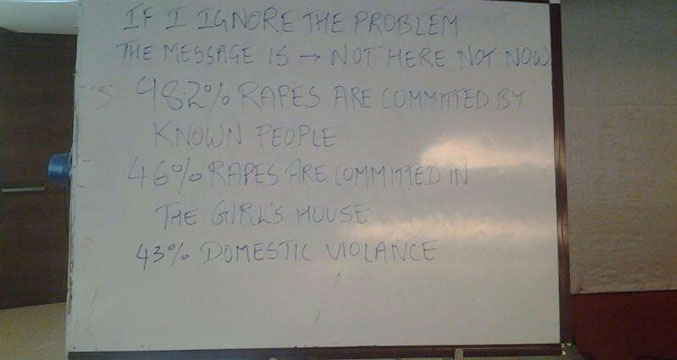 IF I IGNORE THE PROBLEM
THE MESSAGE IS → NOT HERE NOT NOW
98.2% RAPES ARE COMMITTED BY
KNOWN PEOPLE
46% RAPES ARE COMMITTED IN
THE GIRL'S HOUSE
43% DOMESTIC VIOLANCE